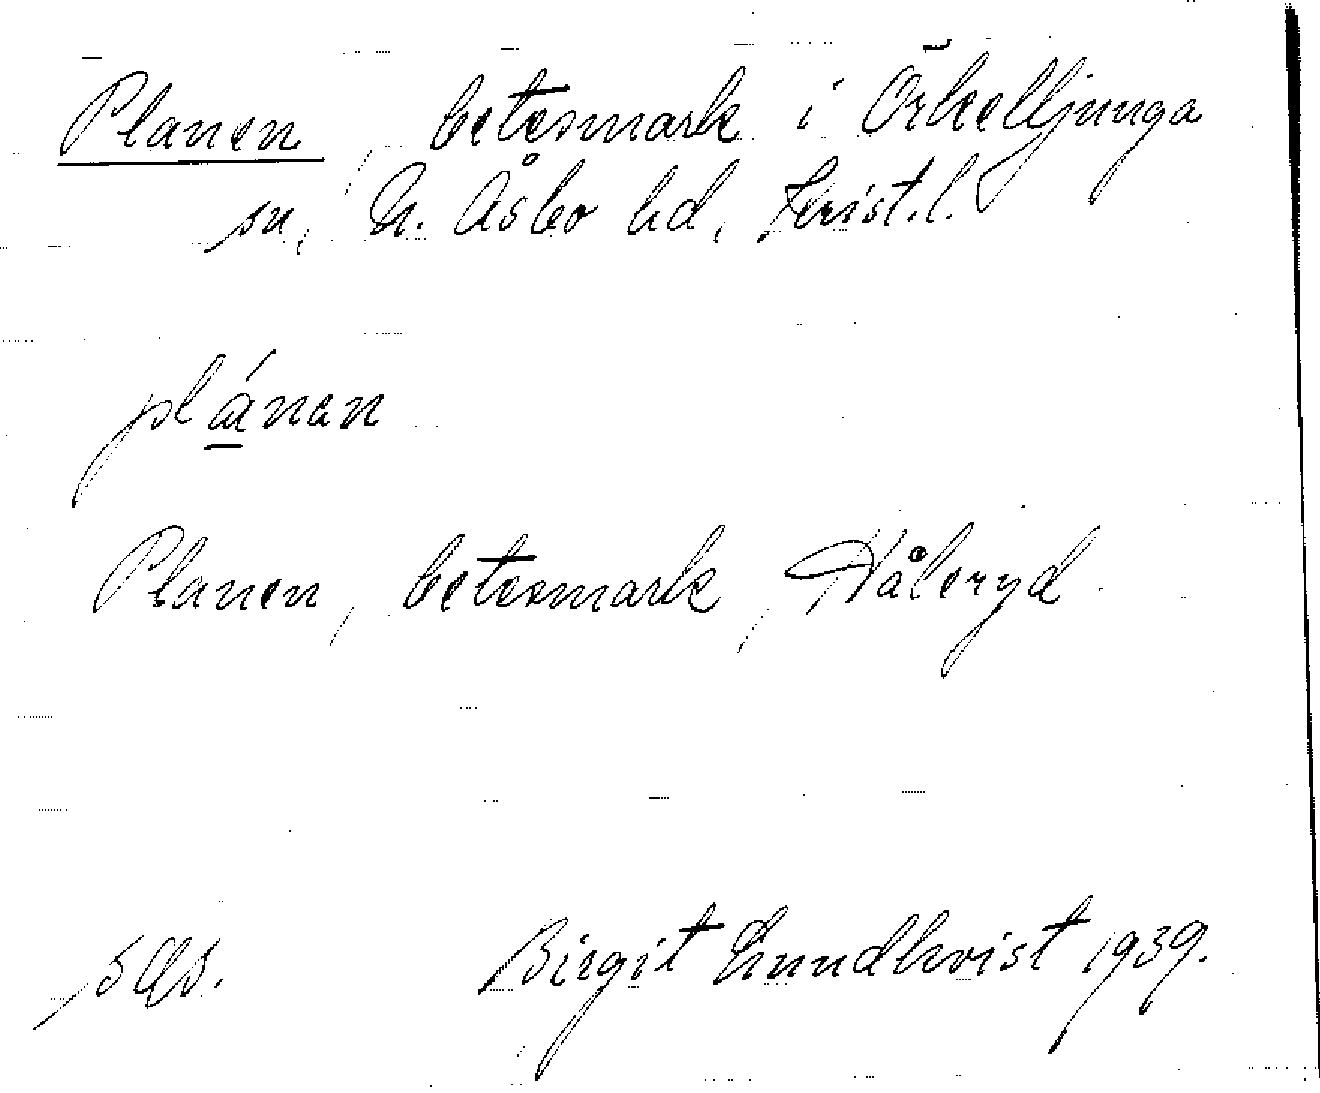 Planen, betesmark i Örkelljunga
sn, N. Åsbo hd, Krist.l.
plánen
Planen, betesmark, Våleryd
Birgit Lundkvist 1939.